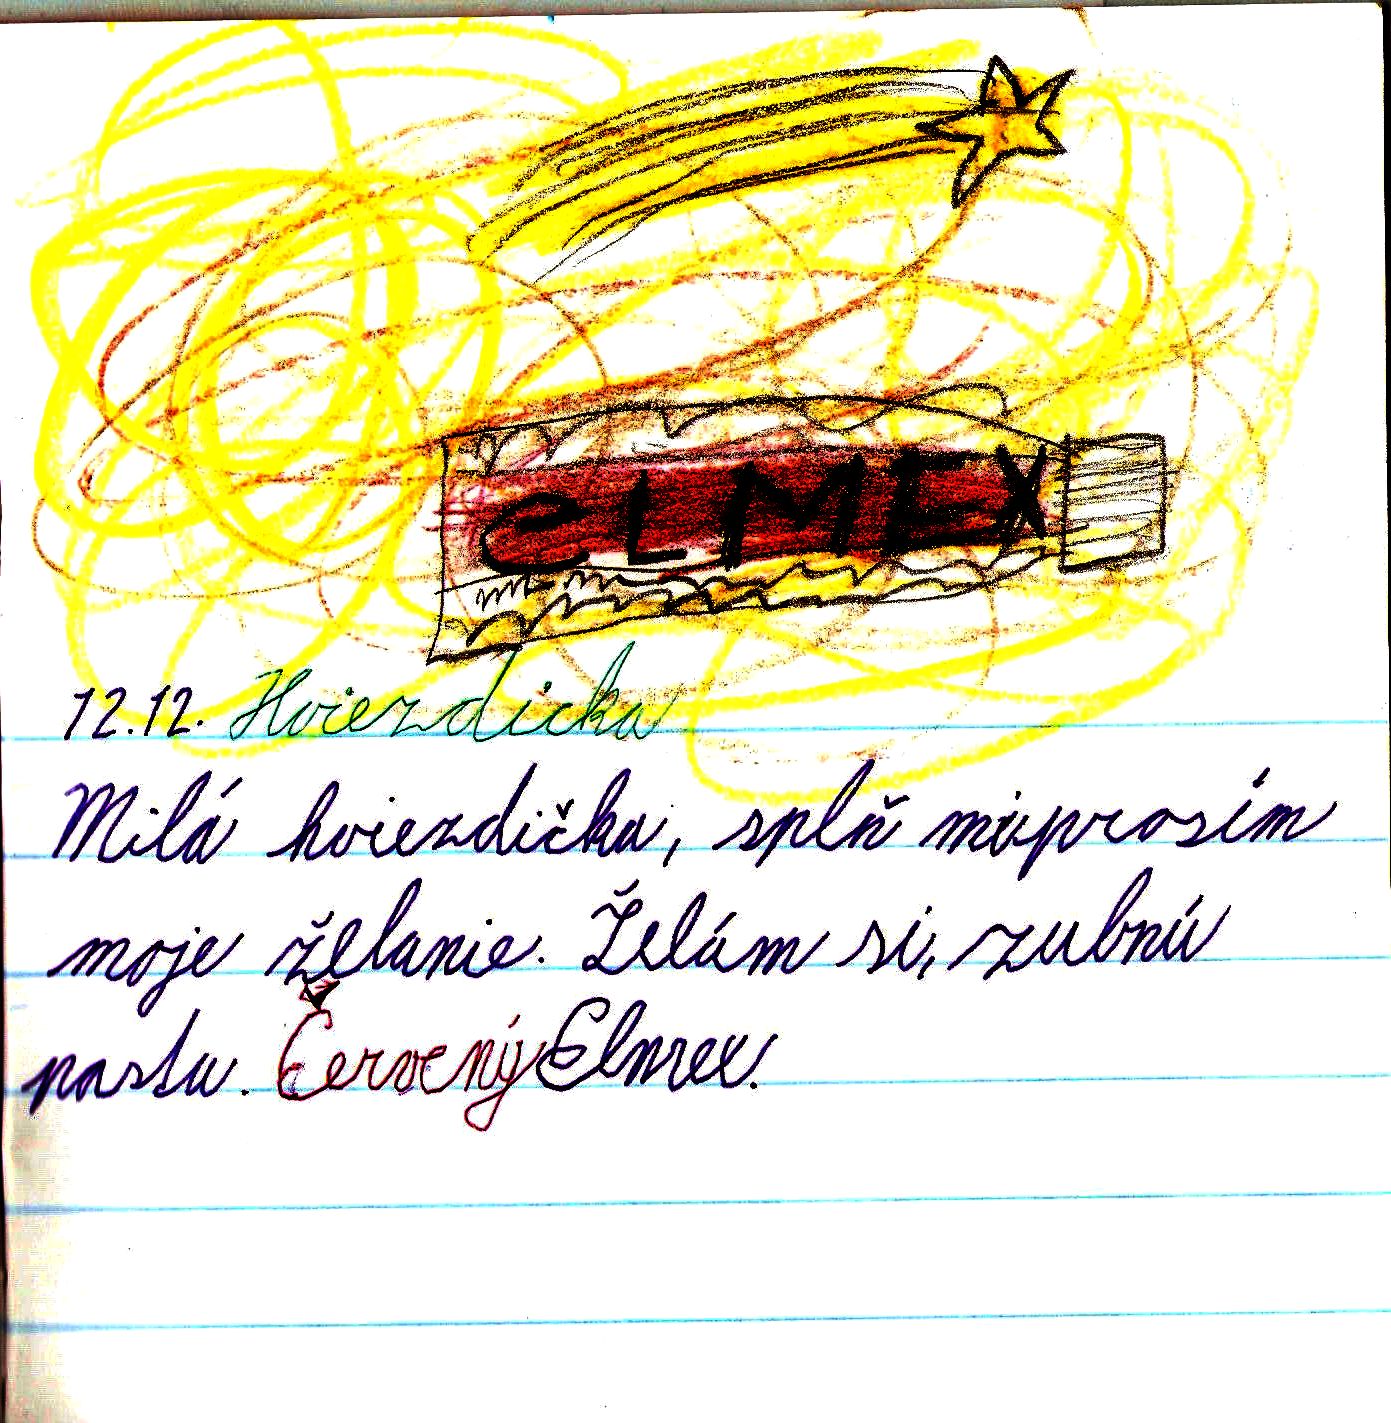 ELMEX
12.12. Hviezdicka
Milá hviezdička, splň mi prosím
moje želanie. Želám si, zubnú
pastu. Červený Elmex.